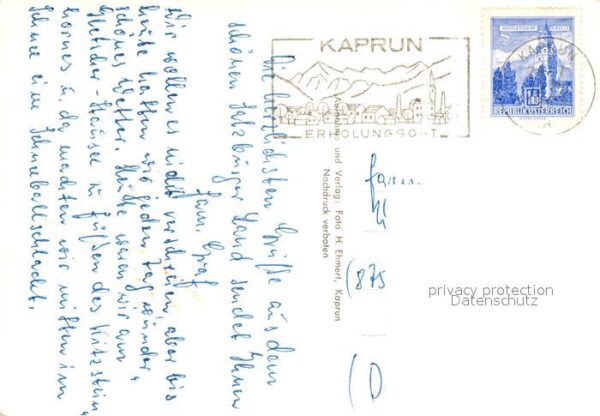 KAPRUN
ERHOLUNGSORT
REPUBLIK ÖSTERREICH
Die herzlichsten Grüße aus dem
schönen Salzburger Land sendet Ihnen
Fam. Graf
Wir wollen es nicht verschreien, aber bis
heute hatten wir jeden Tag wunder-
schönes Wetter. Heute waren wir am
Gletscher-Stausee zu Füßen des Kitzstein-
hornes u. da machten wir mitten im
Schnee eine Schneeballschlacht.
und Verlag: Foto H. Ehmert, Kaprun
Nachdruck verboten
Fam.
(875
(D
privacy protection
Datenschutz